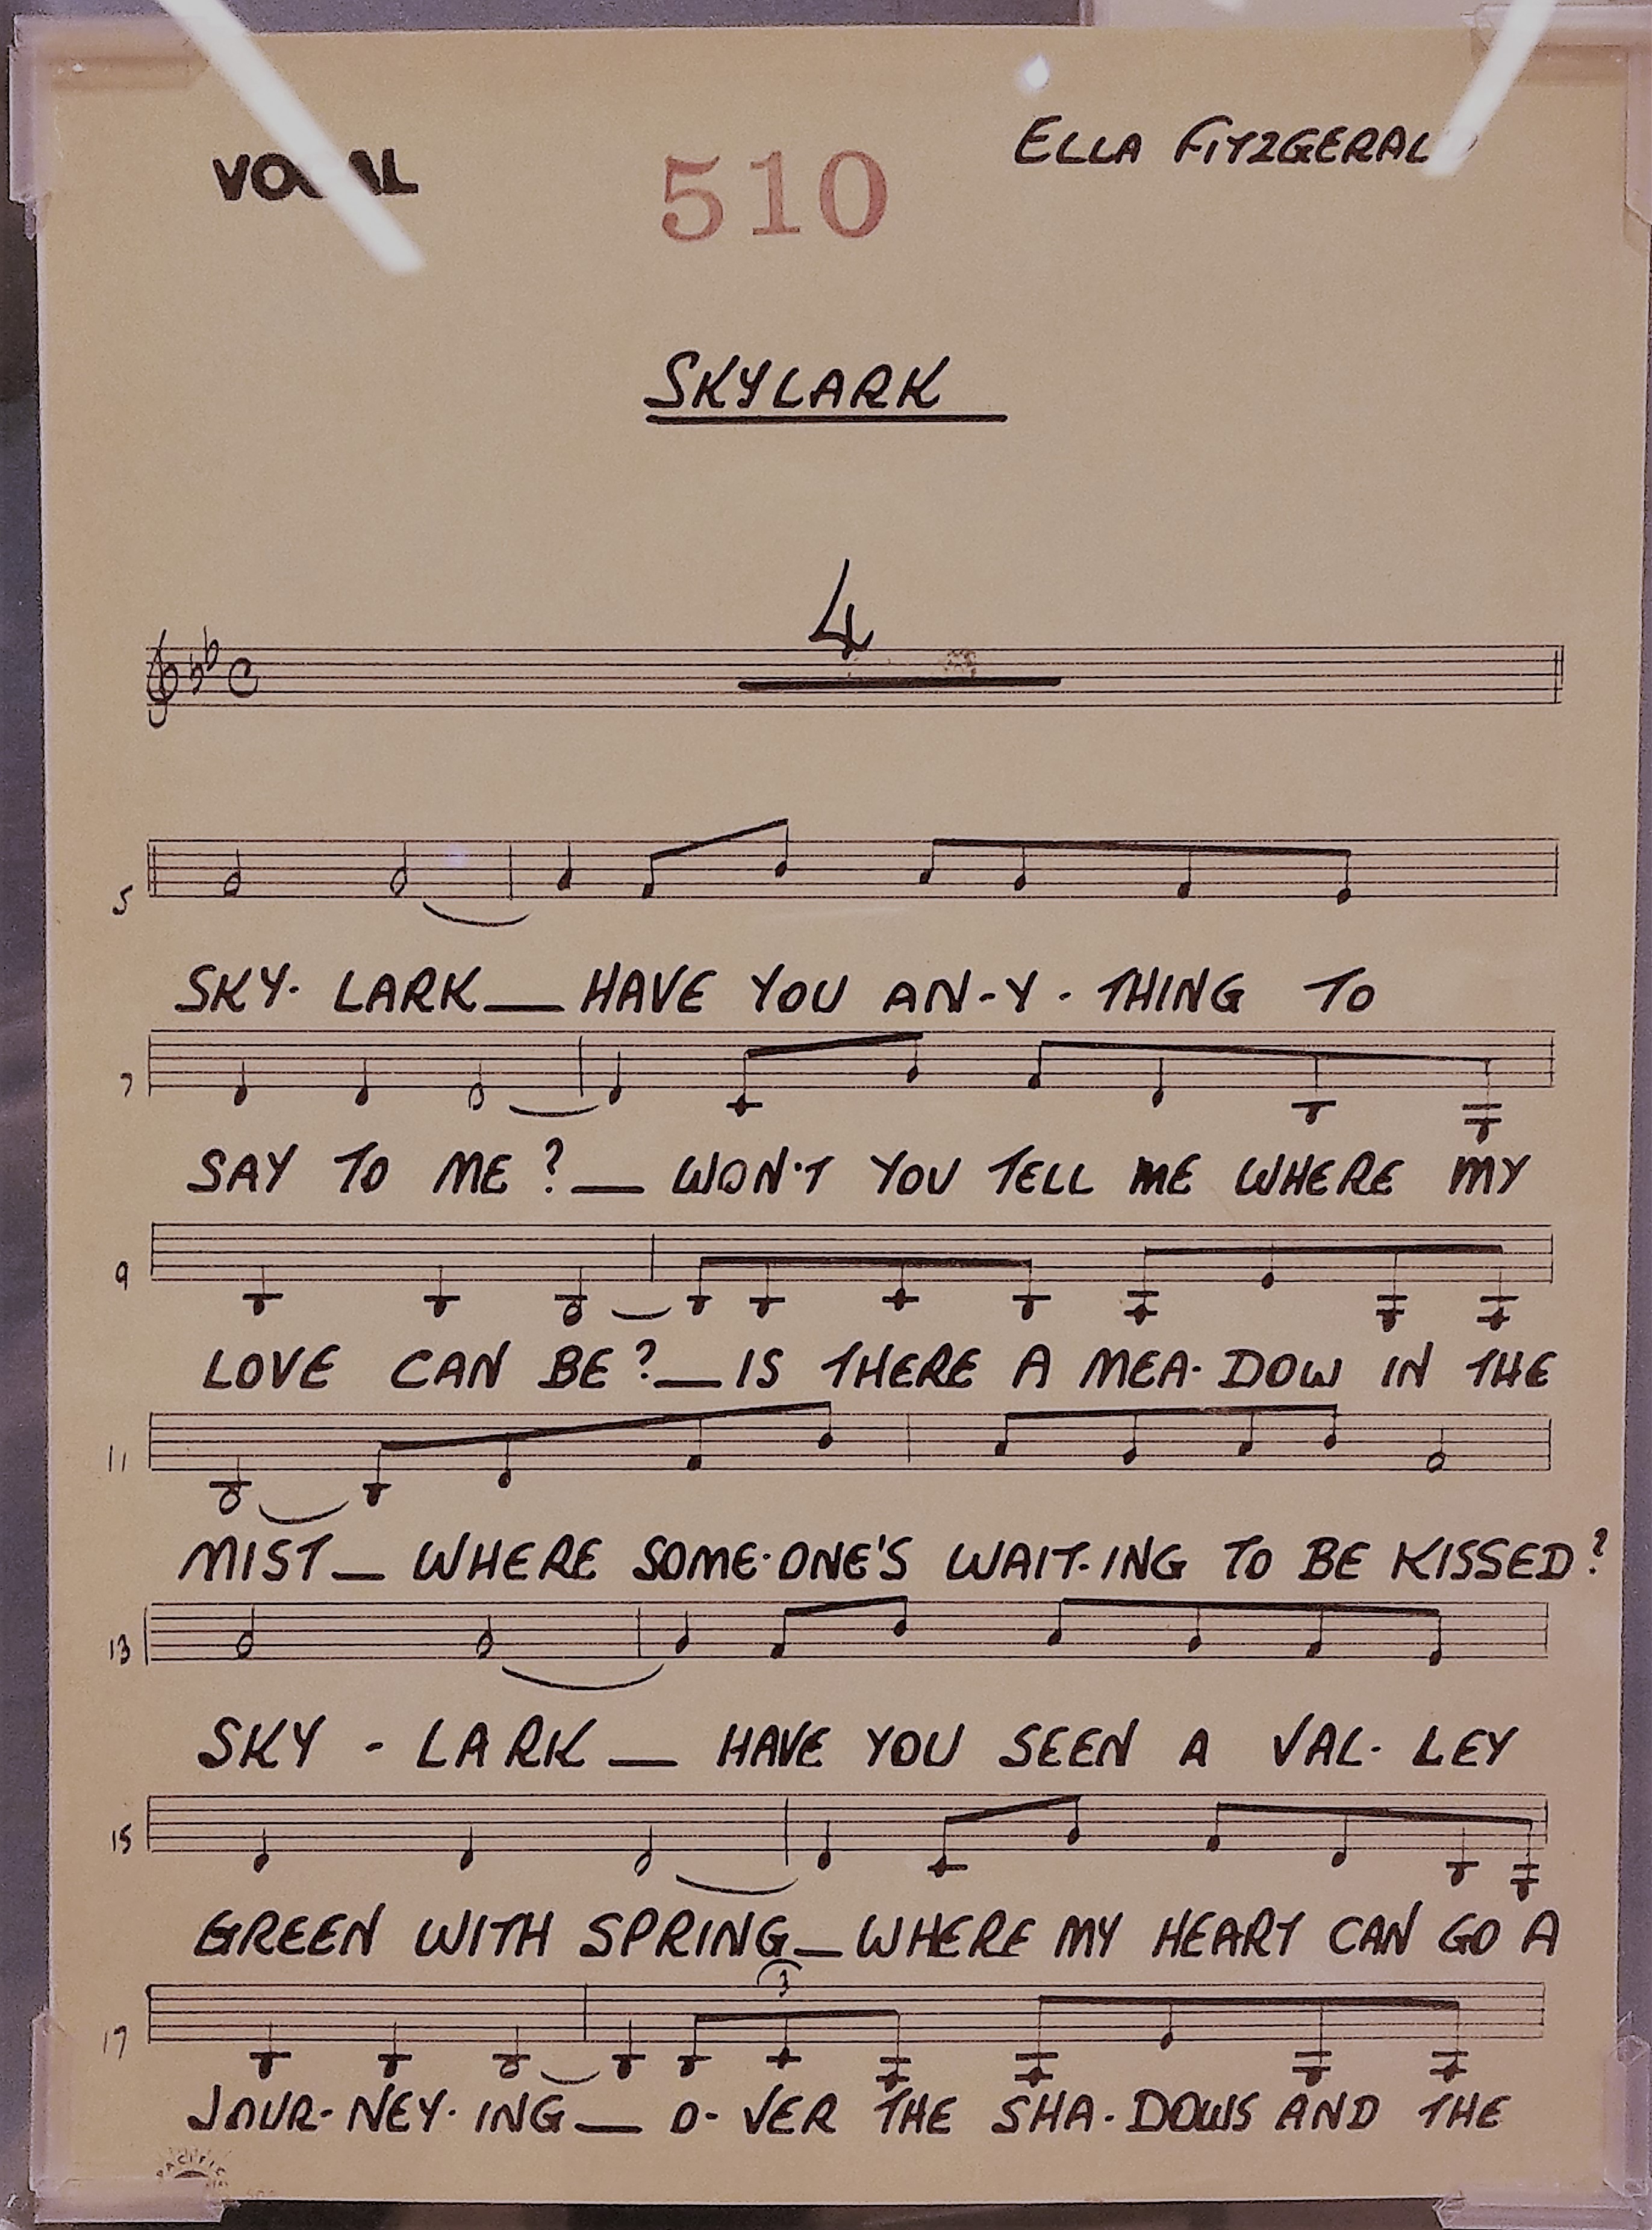 VOCAL 510 ELLA FITZGERALD
SKYLARK
4
5
SKY- LARK__ HAVE YOU AN-Y-THING TO
7
SAY TO ME?__ WON'T YOU TELL ME WHERE MY
9
LOVE CAN BE?__ IS THERE A MEA-DOW IN THE
11
MIST__ WHERE SOME-ONE'S WAIT-ING TO BE KISSED?
13
SKY - LARK__ HAVE YOU SEEN A VAL-LEY
15
GREEN WITH SPRING__ WHERE MY HEART CAN GO A
3
17
JOUR-NEY-ING__ O-VER THE SHA-DOWS AND THE
PACIFIC